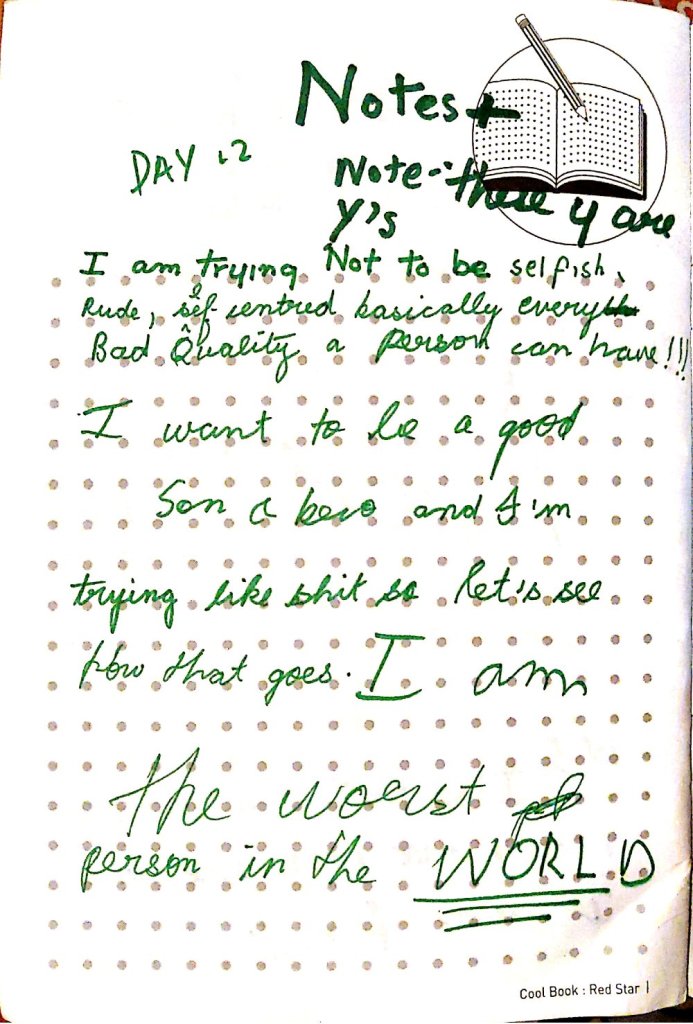 Notes +
DAY .2
Note-: these y are
Y's
I am trying Not to be selfish,
Rude, self-centred basically every
Bad Quality a person can have!!!
I want to be a good
Son a bero and I'm
trying like shit so let's see
how that goes. I am
the worst
person in the WORLD
Cool Book : Red Star |